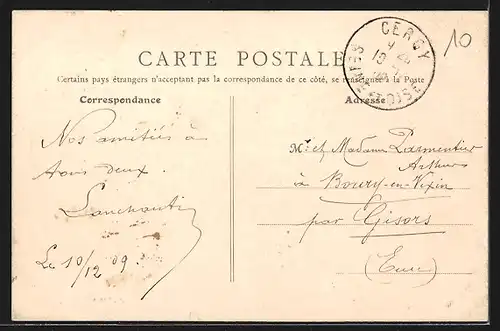 10
CERGY
SEINE-ET-OISE
CARTE POSTALE
Certains pays étrangers n'acceptant pas la correspondance de ce côté, se renseigner à la Poste
Correspondance
Adresse
Nos amitiés à
tous deux.
Le 10/12 09.
Mr et Madame Parmentier
Arthur
à Boury-en-Vexin
par Gisors
(Eure)